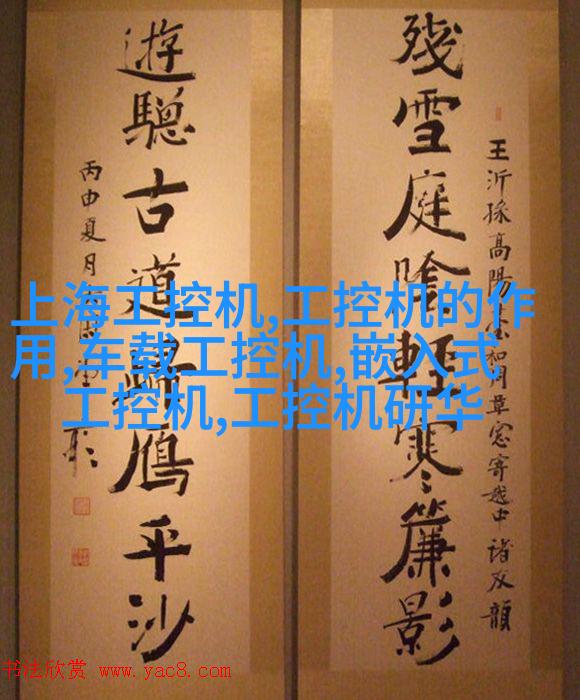 殘雪庭陰輕寒簾影
王沂孫高陽臺和周草窓寄越中諸友韻
遊驄古道歸鴈平沙
丙申夏月
上海工控机,工控机的作
用,车载工控机,嵌入式
工控机,工控机研华
书法欣赏 www.yac8.com